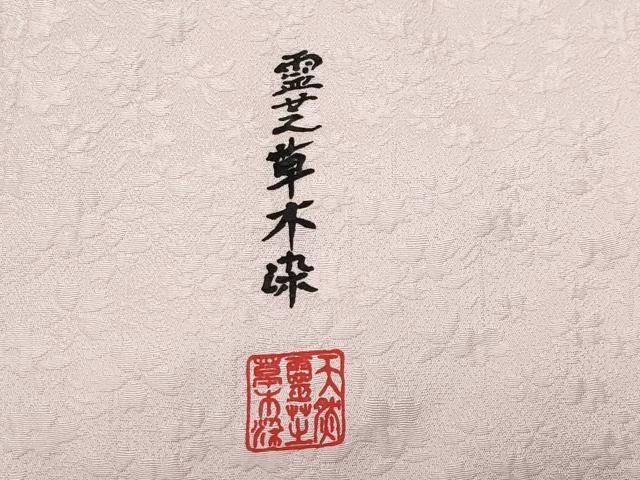 靈芝草木染
天然
靈芝
草木染